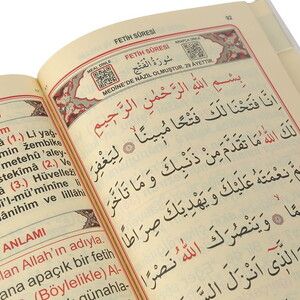 FETİH SÛRESİ
92
FETİH SÛRESİ
سُورَةُ الْفَتْحِ
MEDİNE'DE NAZİL OLMUŞTUR. 29 ÂYETTİR.
بِسْمِ اللّٰهِ الرَّحْمٰنِ الرَّحِيمِ
اِنَّا فَتَحْنَا لَكَ فَتْحًا مُبِينًا ۝ لِيَغْفِرَ
اللّٰهُ مَا تَقَدَّمَ مِنْ ذَنْبِكَ وَمَا تَاَخَّرَ
نِعْمَتَهُ عَلَيْكَ وَيَهْدِيَكَ صِرَاطًا
۝ وَيَنْصُرَكَ اللّٰهُ
الَّذِى اَنْزَلَ
(1.) Li yağ-
zembike
metehû 'aley-
(2.)
Hüvelleẕî
'l-mü'minîne li
ANLAMI
Allah'ın adıyla.
apaçık bir fetih
(Böylelikle) Al-
günahla-